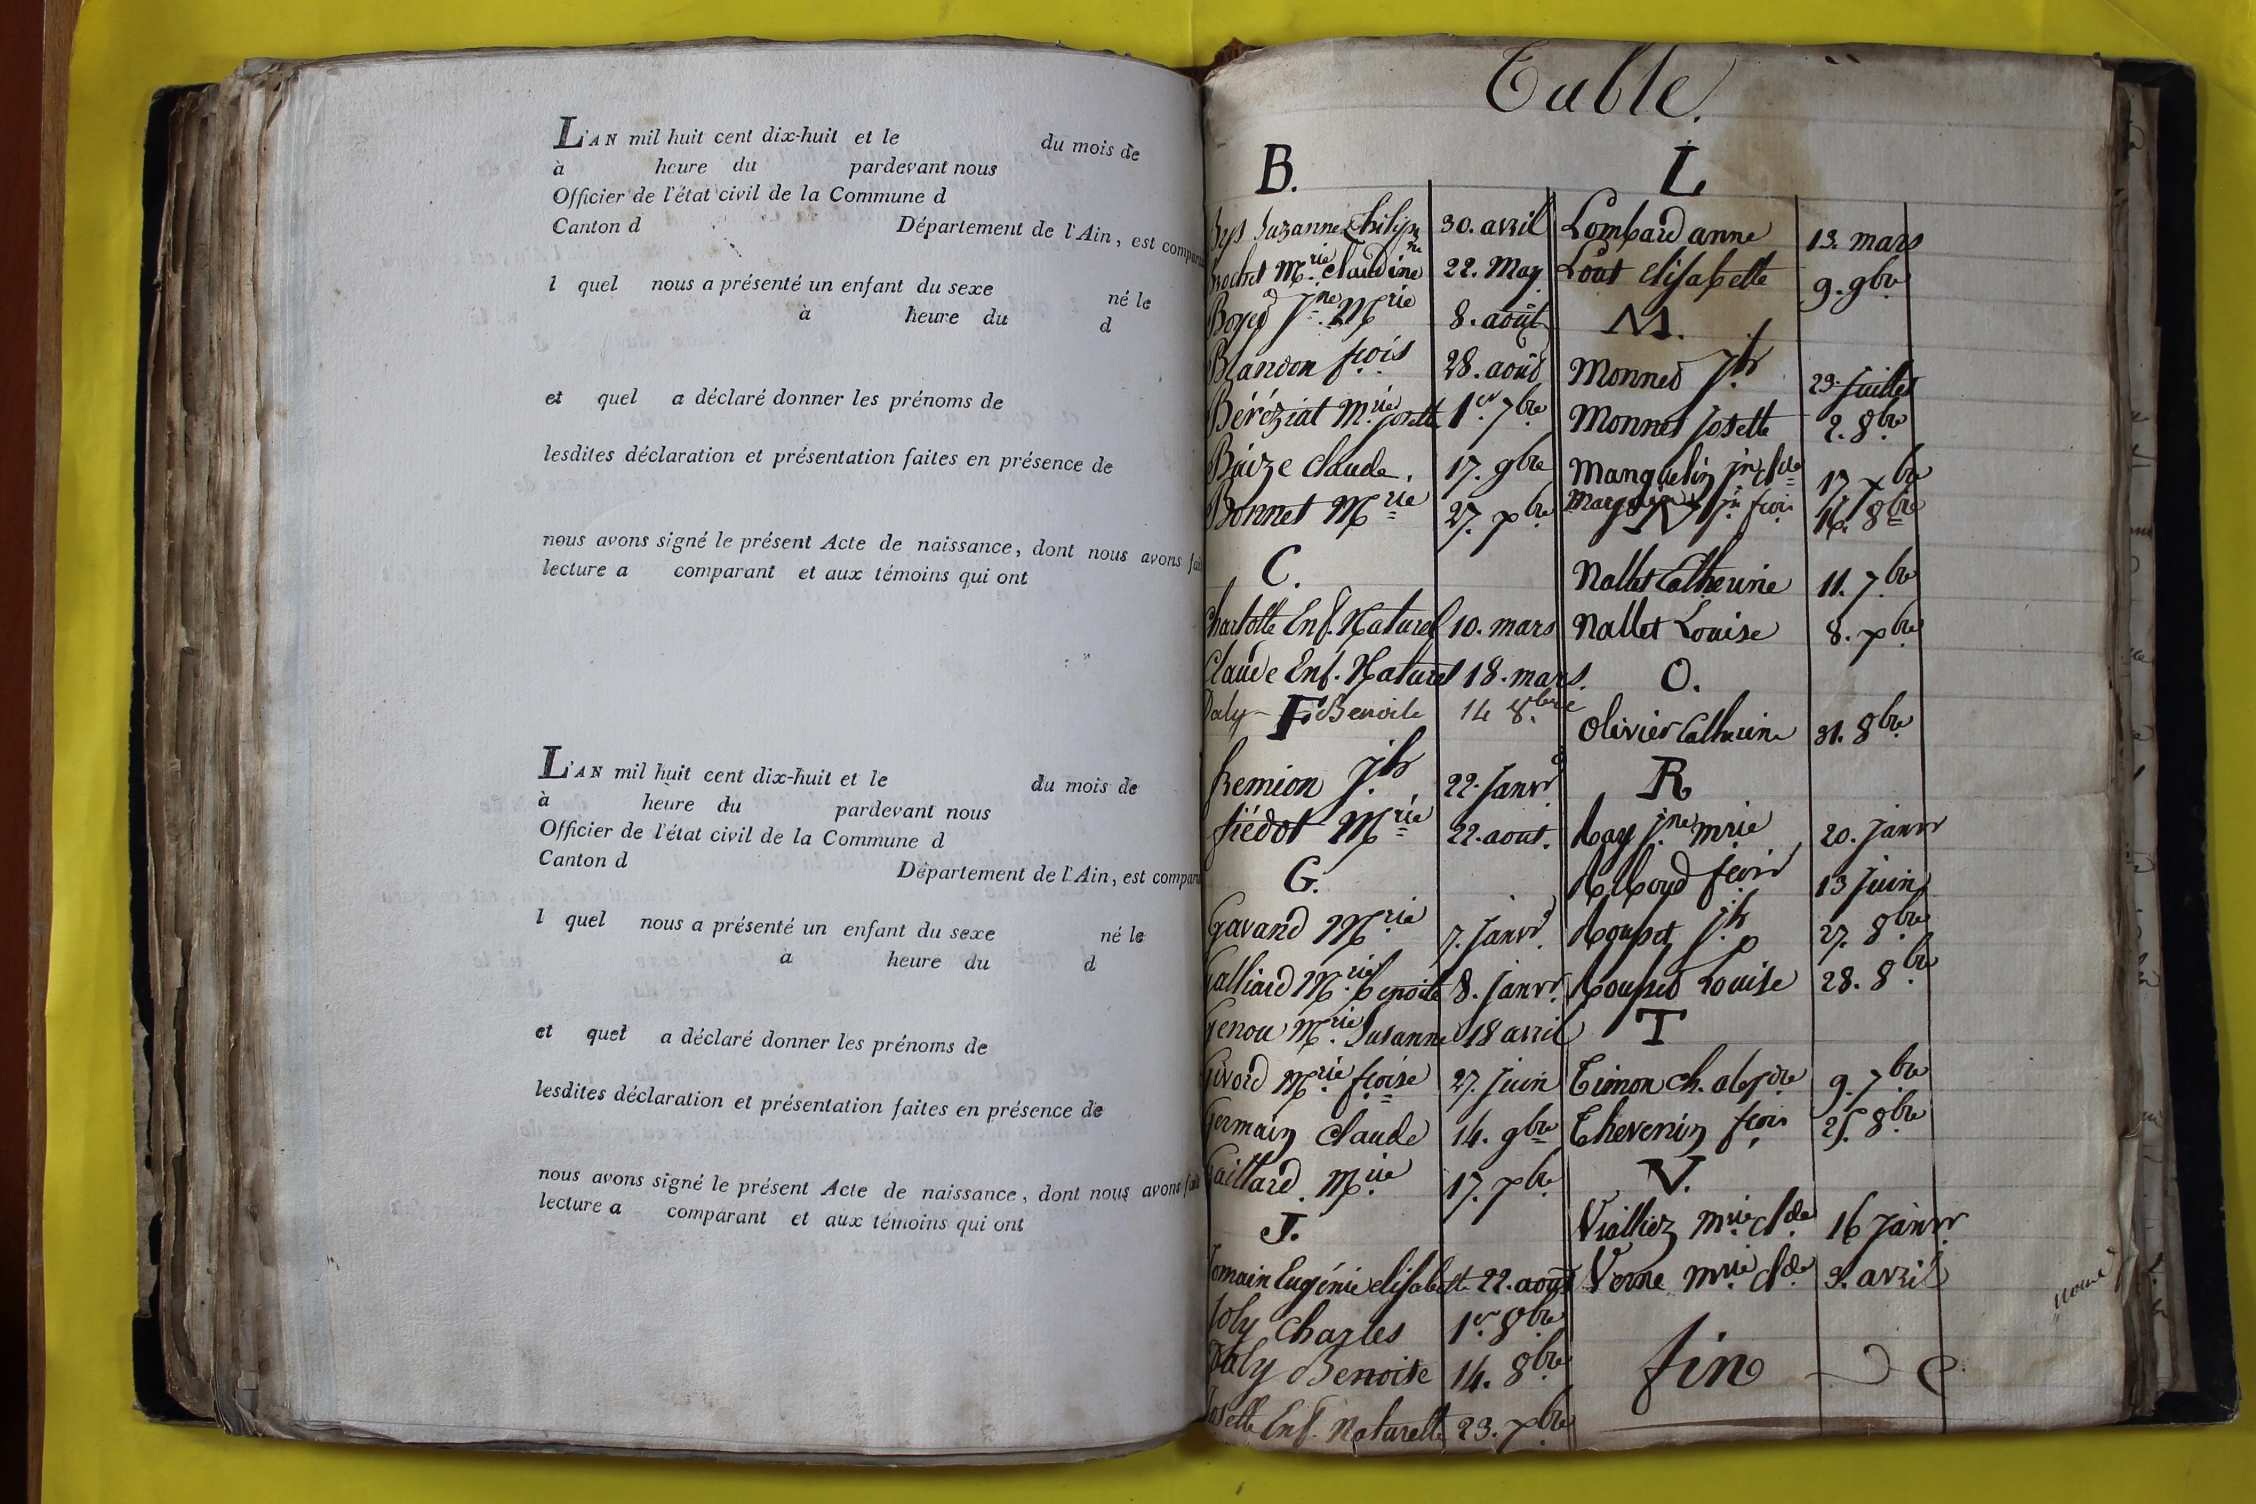 L'AN mil huit cent dix-huit et le du mois de
à heure du pardevant nous
Officier de l'état civil de la Commune d
Canton d Département de l'Ain, est compara
l quel nous a présenté un enfant du sexe né le
à heure du d
et quel a déclaré donner les prénoms de
lesdites déclaration et présentation faites en présence de
nous avons signé le présent Acte de naissance, dont nous avons fait
lecture a comparant et aux témoins qui ont
L'AN mil huit cent dix-huit et le du mois de
à heure du pardevant nous
Officier de l'état civil de la Commune d
Canton d Département de l'Ain, est compara
l quel nous a présenté un enfant du sexe né le
à heure du d
et quel a déclaré donner les prénoms de
lesdites déclaration et présentation faites en présence de
nous avons signé le présent Acte de naissance, dont nous avons fait
lecture a comparant et aux témoins qui ont
Table.
B.
Suzanne 30. avril
Brochet Mrie Claudine 22. May
Boyed Jne Mrie 8. août
Blandon fçois 28. août
Béréziat Mrie Josette 1er 7bre
Buize Claude. 17. 9bre
Bonnet Mrie 27. xbre
C.
Charlotte Enf. Naturel 10. mars
Claude Enf. Naturel 18. mars.
Daly Benoite 14 8bre
F
fremion Jh 22. Janvr
fiédot Mrie 22. aout.
G.
Gavand Mrie 7. Janvr
Galliard Mrie Benoite 8. janvr
Genou Mrie Susanne 18 avril
Givord Mrie fçoise 27. Juin
Germain Claude 14. 9bre
Gaillard Mrie 17. xbre
J.
Jomain Eugénie elisabeth 22. aout
Joly Charles 1er 8bre
Daly Benoite 14. 8bre
Josette Enf. Naturelle 23. xbre
L
Lombard anne 13. mars
Lout Elisabette 9. 9bre
M.
Monned Jh 29. Juillet
Monnet Josette 2. 8bre
Manguelin jn Cde 17 xbre
jn fçois 16. 8bre
N
Nallet Catherine 11. 7bre
Nallet Louise 8. xbre
O.
Olivier Catherine 31. 8bre
R
Ray jne mrie 20. Janvr
Reboyd fçois 13 Juin
Roupet jh 27. 8bre
Rouped Louise 28. 8bre
T
Timon Ch. alexdre 9. 7bre
Thevenin fçois 25. 8bre
V.
Vialliez Mrie Cde 16 Janvr
Verne mrie Cde 3. avril
fin